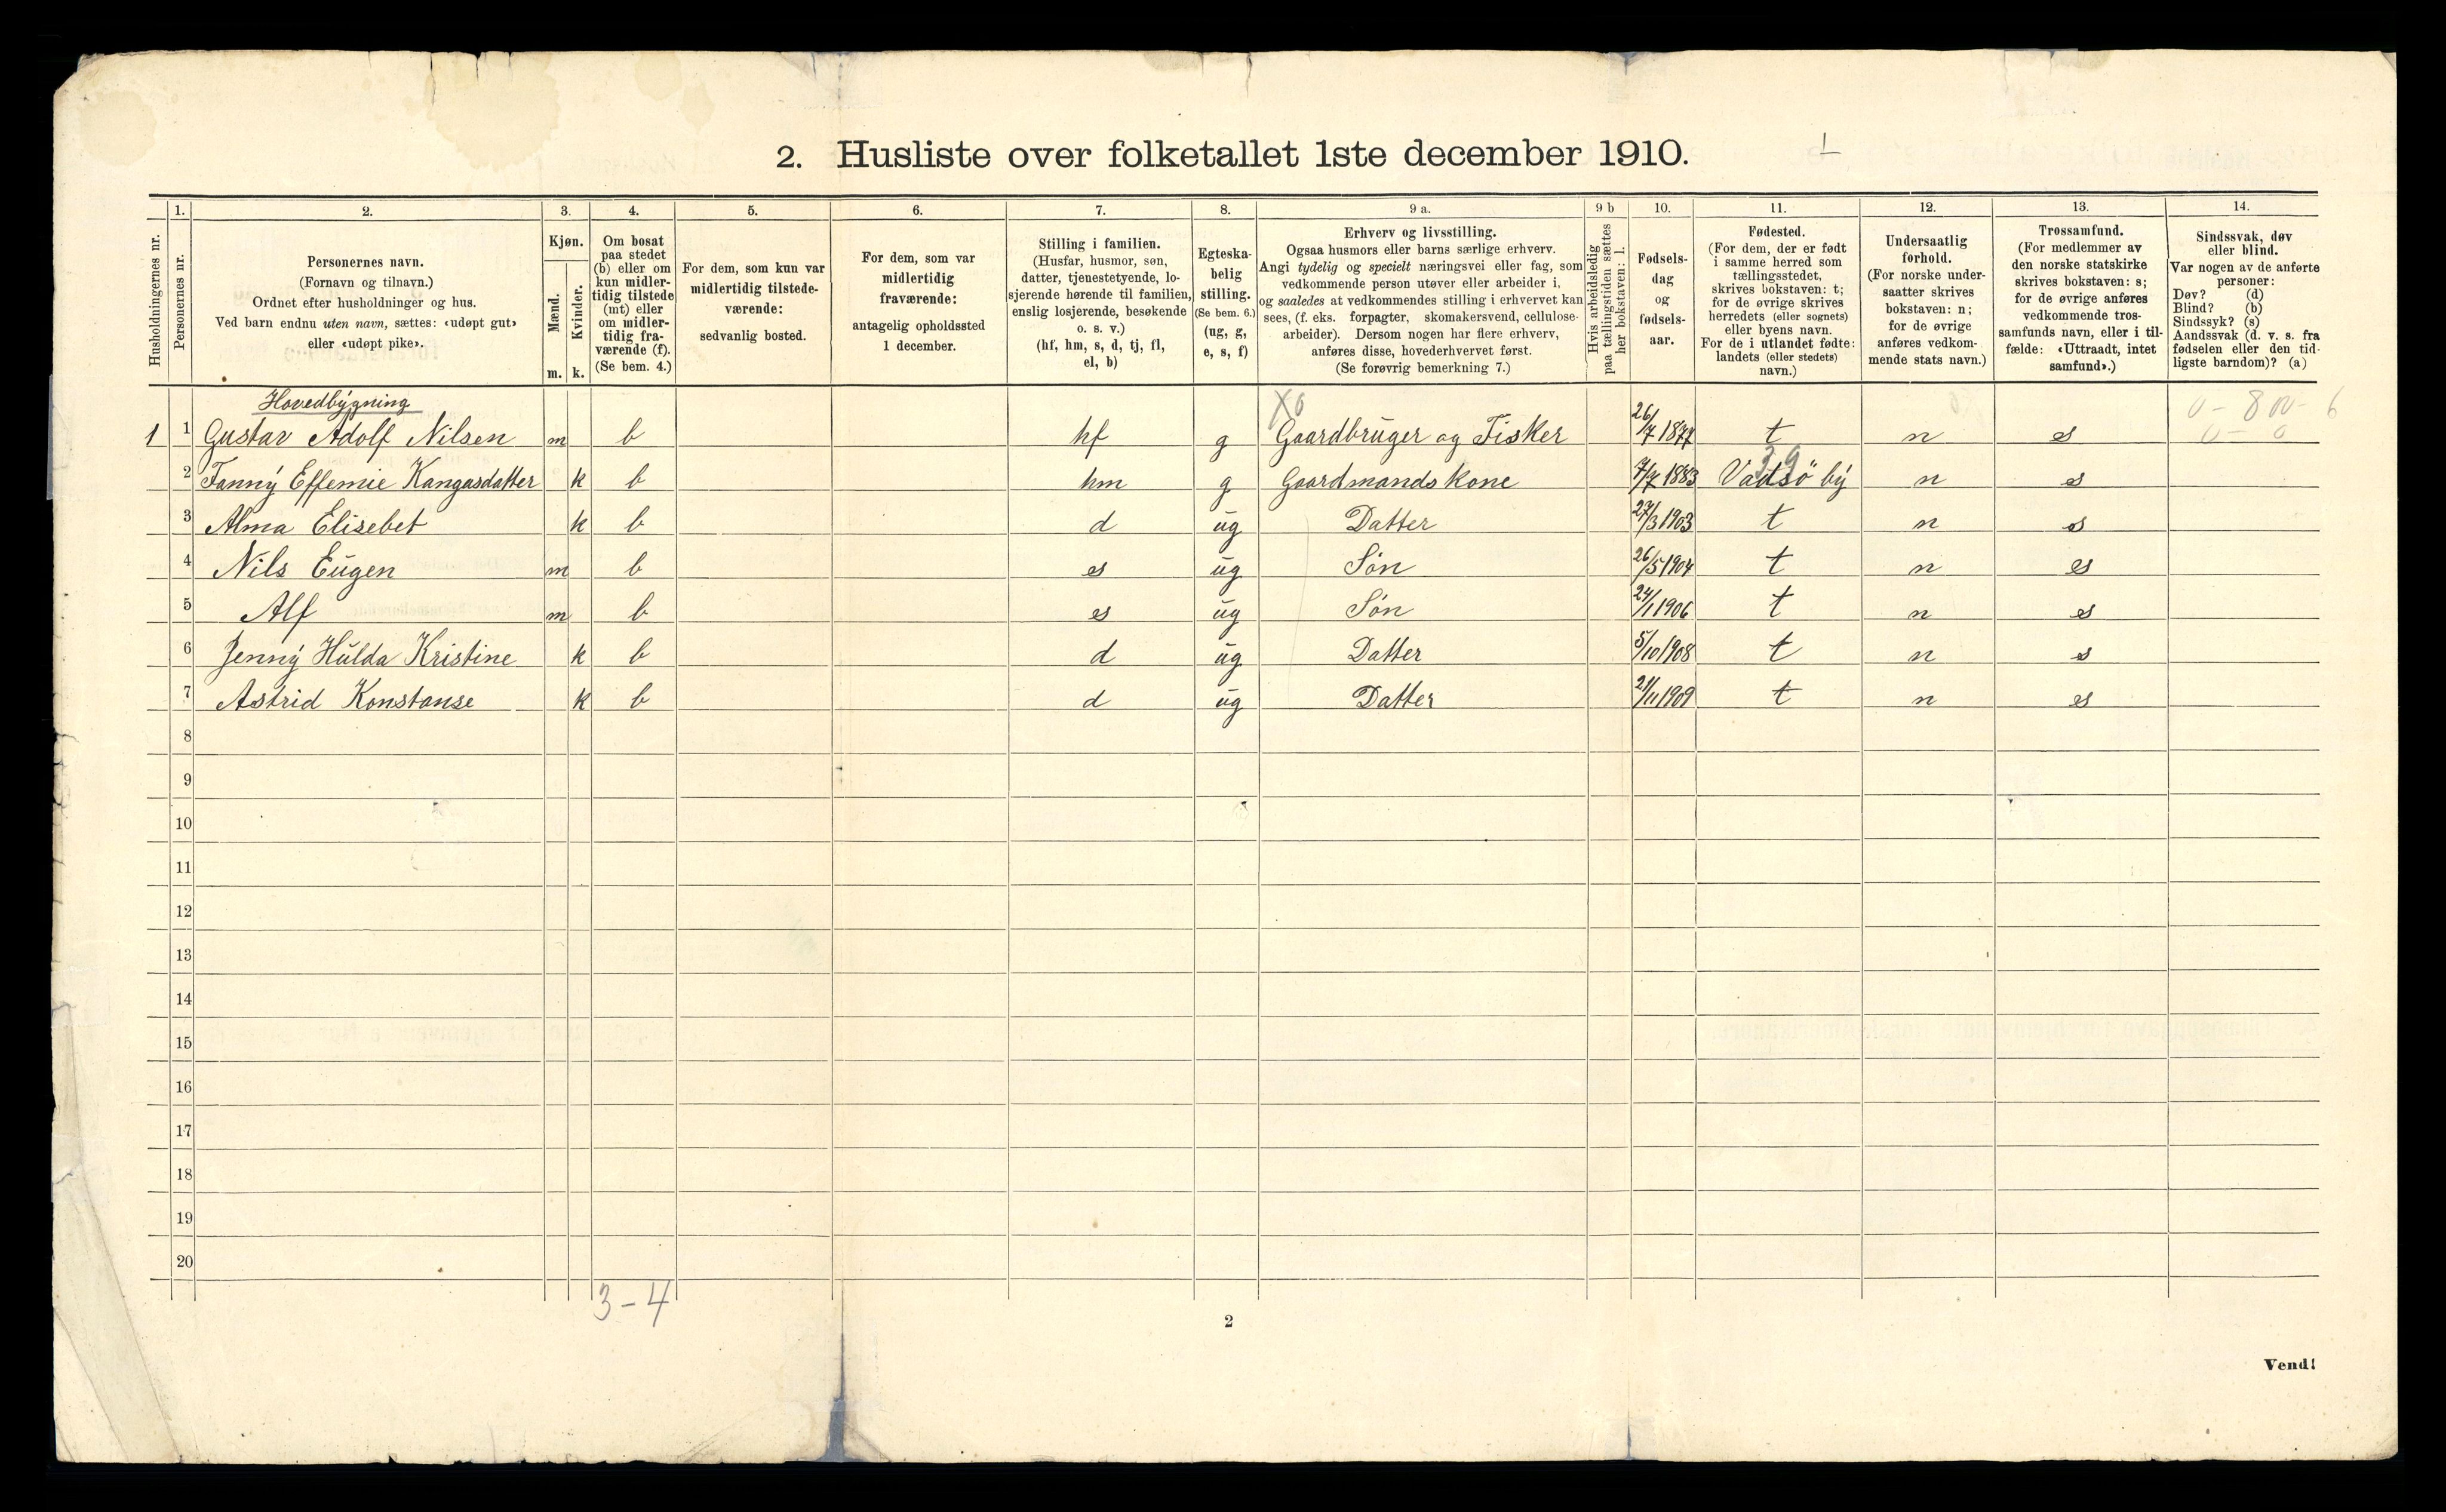 2. Husliste over folketallet 1ste december 1910.
Husholdningernes nr.
1.
Personernes nr.
2.
Personernes navn.
(Fornavn og tilnavn.)
Ordnet efter husholdninger og hus.
Ved barn endnu uten navn, sættes: «udøpt gut»
eller «udøpt pike».
3.
Kjøn.
Mænd.
Kvinder.
m. k.
4.
Om bosat
paa stedet
(b) eller om
kun midler-
tidig tilstede
(mt) eller
om midler-
tidig fra-
værende (f).
(Se bem. 4.)
5.
For dem, som kun var
midlertidig tilstede-
værende:
sedvanlig bosted.
6.
For dem, som var
midlertidig
fraværende:
antagelig opholdssted
1 december.
7.
Stilling i familien.
(Husfar, husmor, søn,
datter, tjenestetyende, lo-
sjerende hørende til familien,
enslig losjerende, besøkende
o. s. v.)
(hf, hm, s, d, tj, fl,
el, b)
8.
Egteska-
belig
stilling.
(Se bem. 6.)
(ug, g,
e, s, f)
9 a.
Erhverv og livsstilling.
Ogsaa husmors eller barns særlige erhverv.
Angi tydelig og specielt næringsvei eller fag, som
vedkommende person utøver eller arbeider i,
og saaledes at vedkommendes stilling i erhvervet kan
sees, (f. eks. forpagter, skomakersvend, cellulose-
arbeider). Dersom nogen har flere erhverv,
anføres disse, hovederhvervet først.
(Se forøvrig bemerkning 7.)
9 b
Hvis arbeidsledig
paa tællingstiden sættes
her bokstaven: l.
10.
Fødsels-
dag
og
fødsels-
aar.
11.
Fødested.
(For dem, der er født
i samme herred som
tællingsstedet,
skrives bokstaven: t;
for de øvrige skrives
herredets (eller sognets)
eller byens navn.
For de i utlandet fødte:
landets (eller stedets)
navn.)
12.
Undersaatlig
forhold.
(For norske under-
saatter skrives
bokstaven: n;
for de øvrige
anføres vedkom-
mende stats navn.)
13.
Trossamfund.
(For medlemmer av
den norske statskirke
skrives bokstaven: s;
for de øvrige anføres
vedkommende tros-
samfunds navn, eller i til-
fælde: «Uttraadt, intet
samfund».)
14.
Sindssvak, døv
eller blind.
Var nogen av de anførte
personer:
Døv? (d)
Blind? (b)
Sindssyk? (s)
Aandssvak (d. v. s. fra
fødselen eller den tid-
ligste barndom)? (a)
Hovedbygning
1 1 Gustav Adolf Nilsen m b hf g Gaardbruger og Fisker 26/7 1877 t n s
2 Fanny Effemie Kangasdatter k b hm g Gaardmandskone 7/7 1883 Vadsö by n s
39
3 Alma Elisebet k b d ug Datter 27/3 1903 t n s
4 Nils Eugen m b s ug Sön 26/5 1904 t n s
5 Alf m b s ug Sön 24/1 1906 t n s
6 Jenny Hulda Kristine k b d ug Datter 5/10 1908 t n s
7 Astrid Konstanse k b d ug Datter 21/11 1909 t n s
8
9
10
11
12
13
14
15
16
17
18
19
20
3-4
2
Vend!